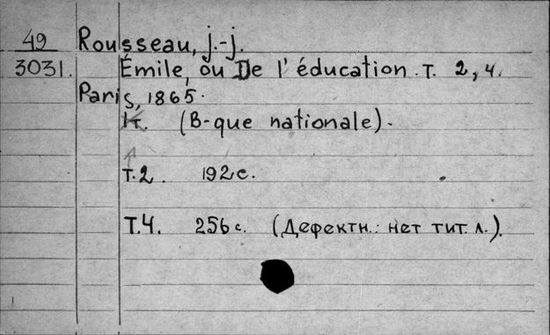 49 Rousseau, J.-J.
3031. Émile, ou De l'éducation. Т. 2, 4.
Paris, 1865.
(B-que nationale).
Т.2. 192 с.
Т.4. 256 с. (Дефектн.: нет тит. л.).